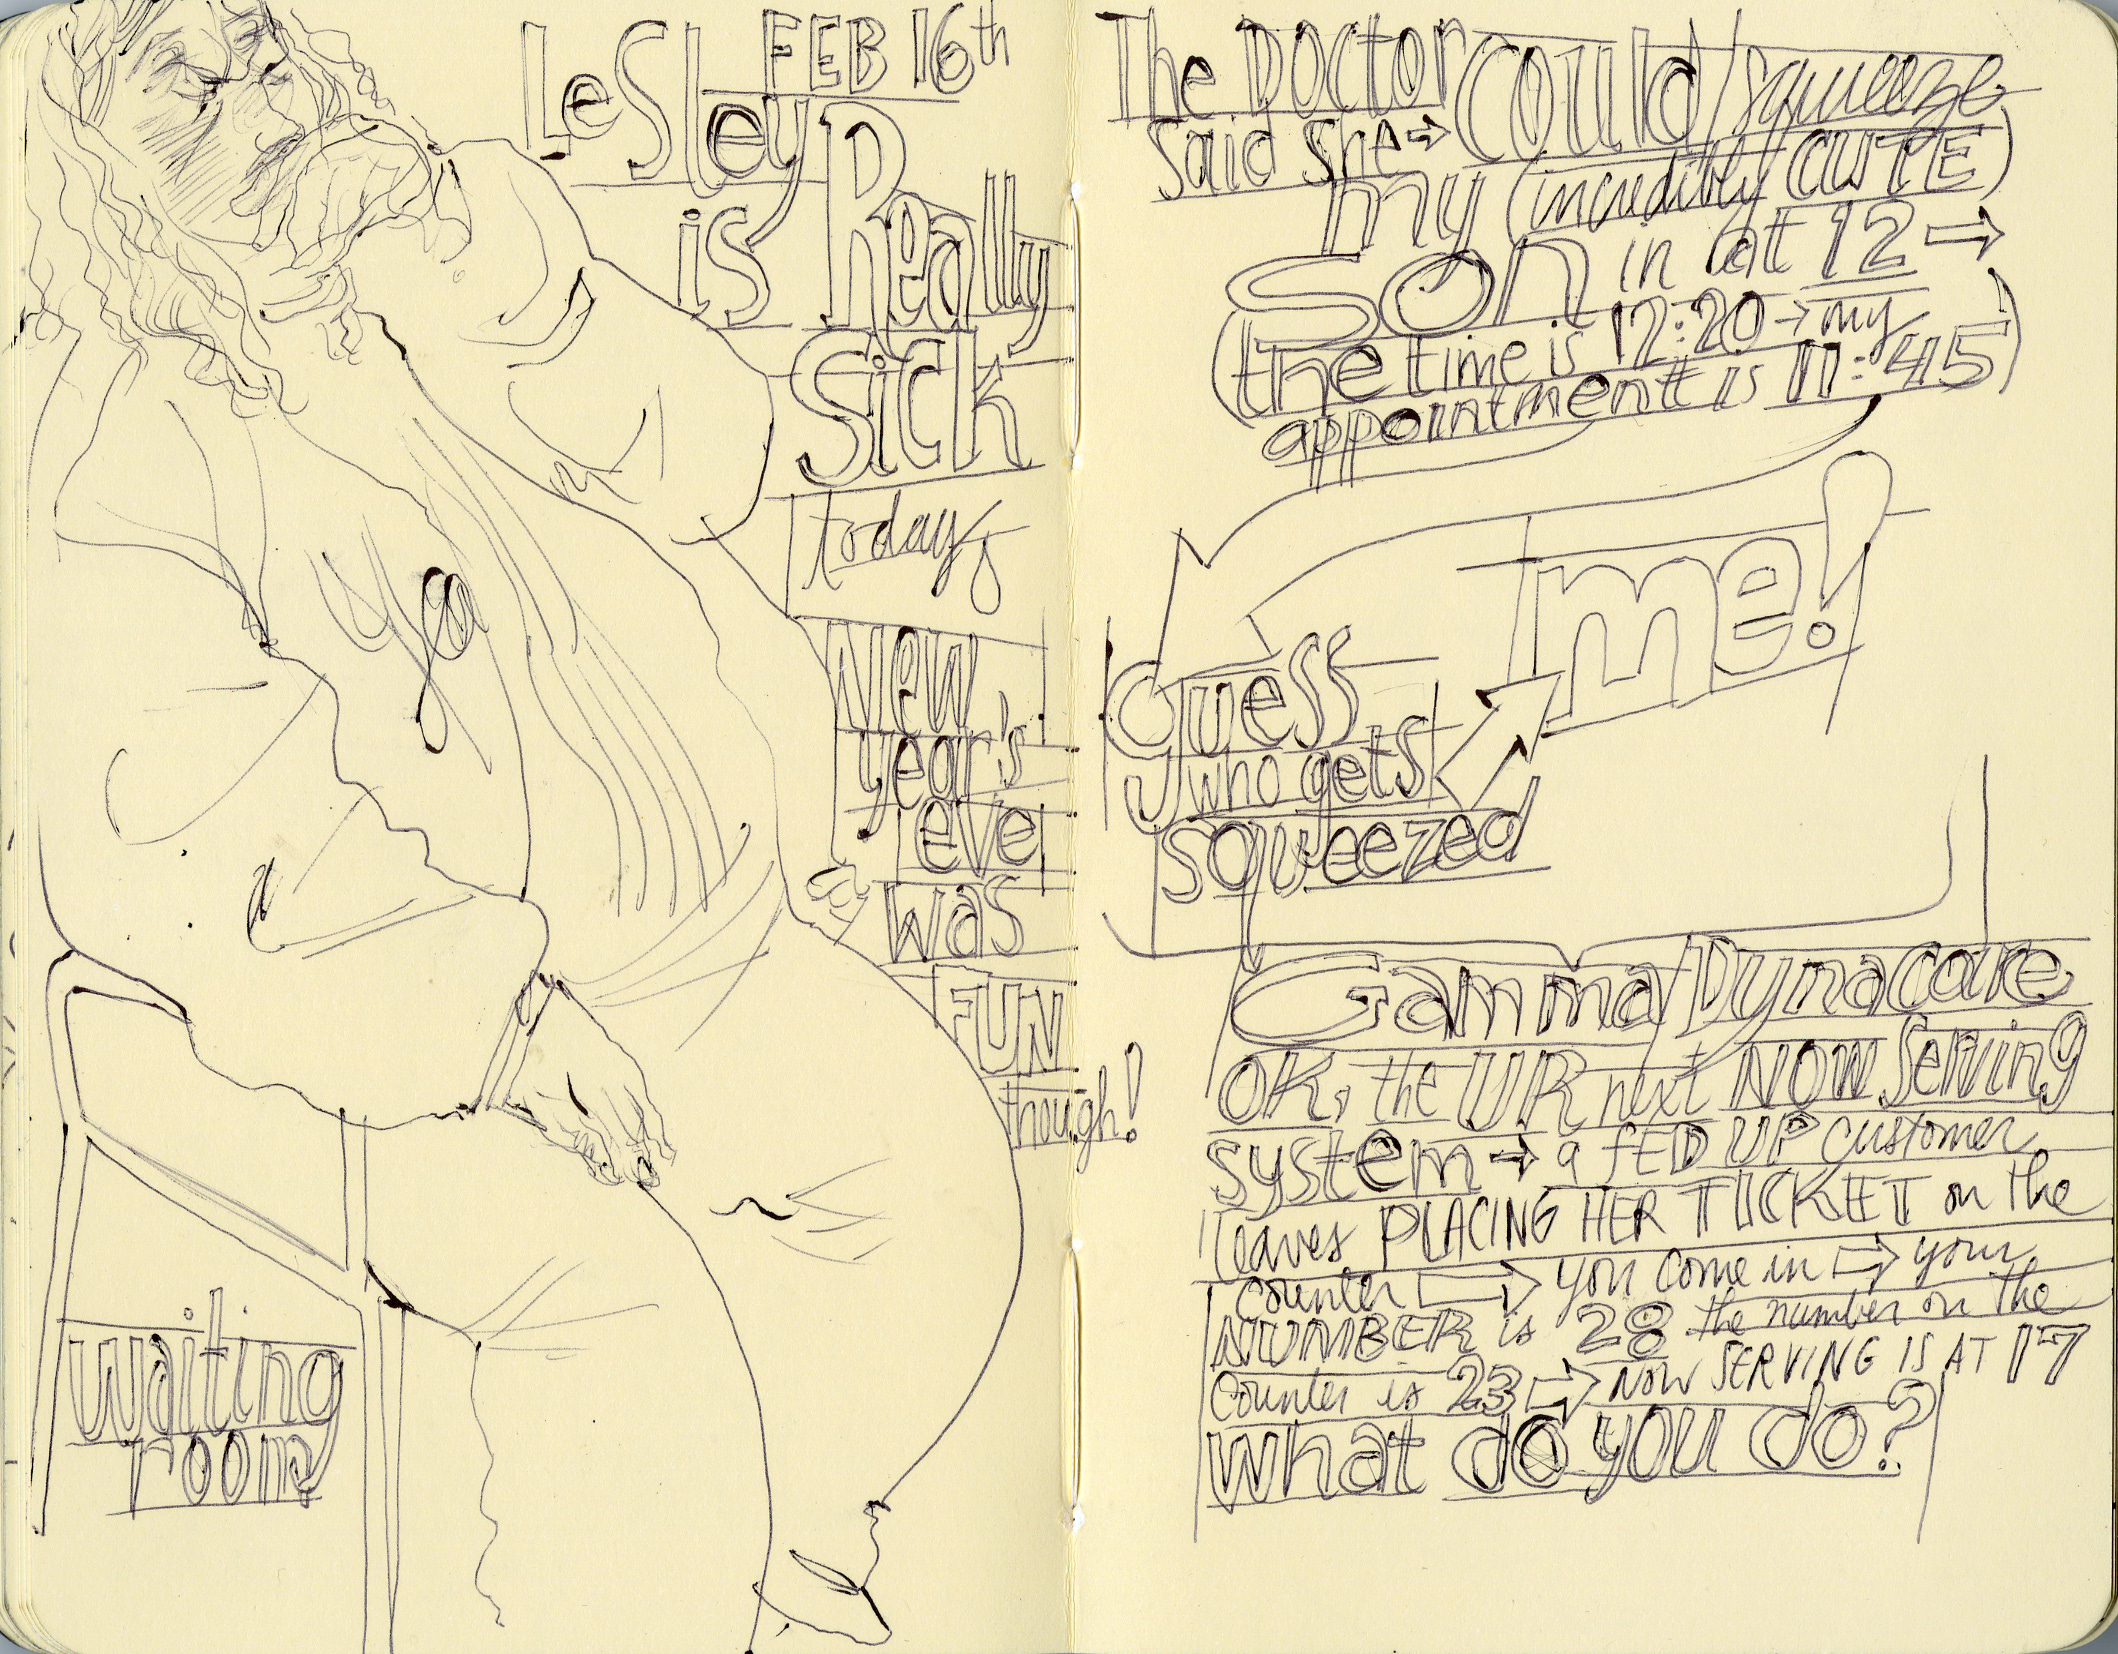 FEB 16th
LeSley
is Really
Sick
today
New
year's
eve
was
FUN
though!
waiting
room
The Doctor COULD squeeze
Said She → my (incredibly CUTE)
SON in at 12 →
(the time is 12:20 → my
appointment is 11:45)
Guess
who gets
squeezed
me!
Gamma Dynacare
OK, the UR next NOW Serving
system → a fED UP customer
leaves PLACING HER TICKET on the
counter → you come in → your
NUMBER is 28 the number on the
counter is 23 → NOW SERVING IS AT 17
what do you do?